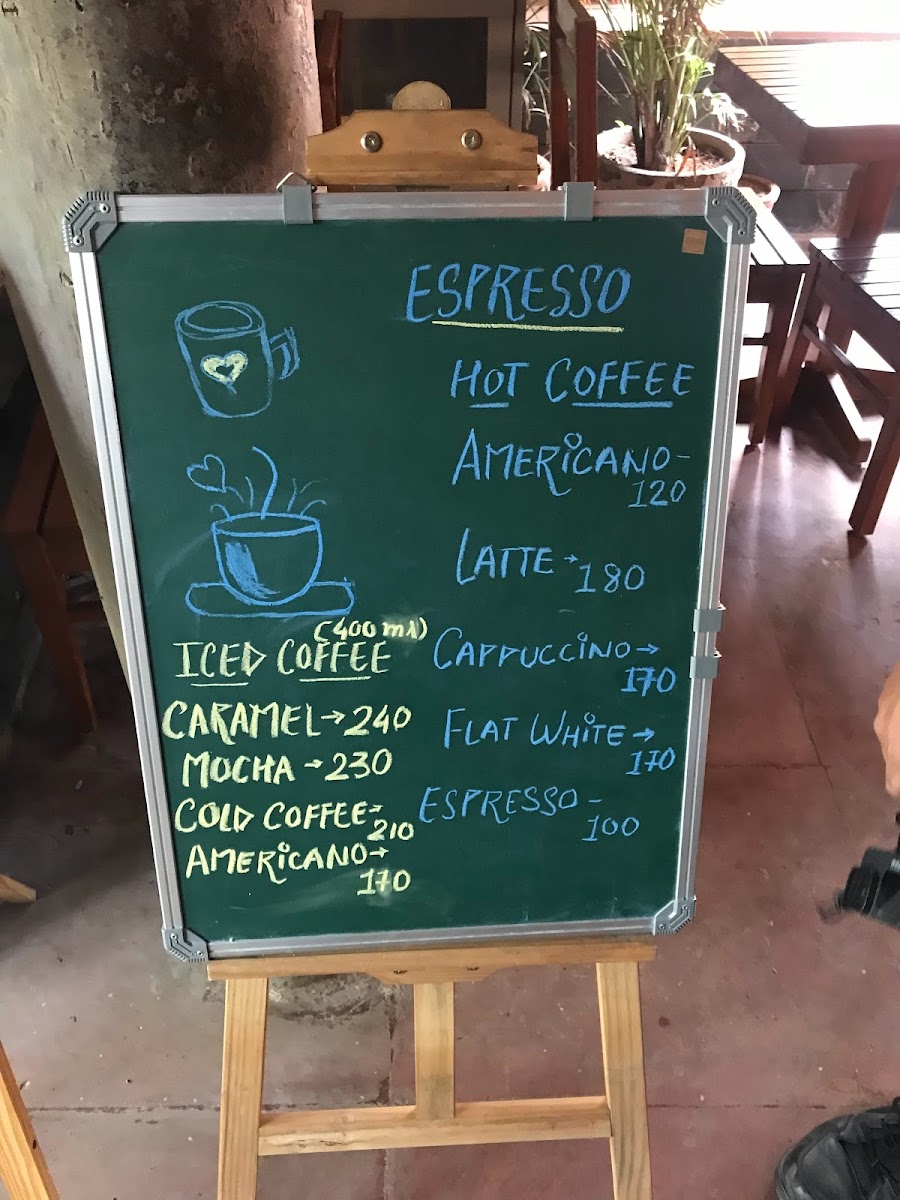 ESPRESSO
HOT COFFEE
AMERICANO-
120
LATTE→180
CAPPUCCINO→
170
FLAT WHITE→
170
ESPRESSO-
100
(400 ml)
ICED COFFEE
CARAMEL→240
MOCHA→230
COLD COFFEE→
210
AMERICANO→
170